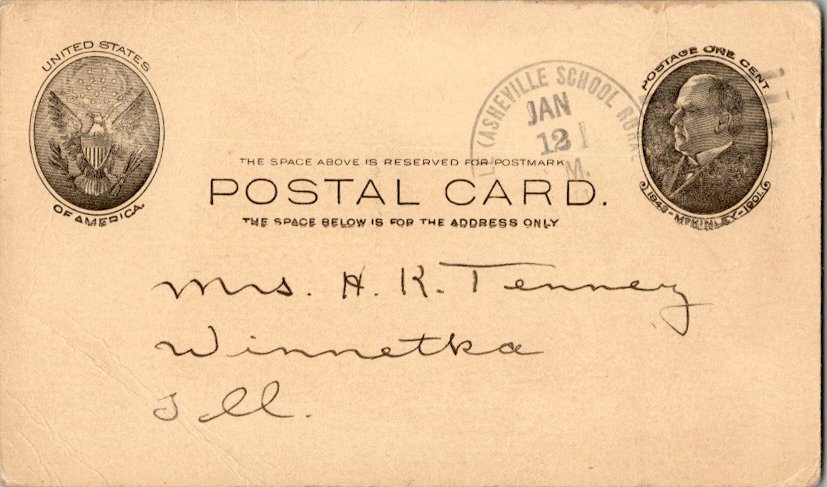 UNITED STATES
OF AMERICA.
(ASHEVILLE SCHOOL RURAL
JAN
12
M.
POSTAGE ONE CENT
1843-McKINLEY-1901.
THE SPACE ABOVE IS RESERVED FOR POSTMARK
POSTAL CARD.
THE SPACE BELOW IS FOR THE ADDRESS ONLY
Mrs. H. K. Tenney
Winnetka
Ill.